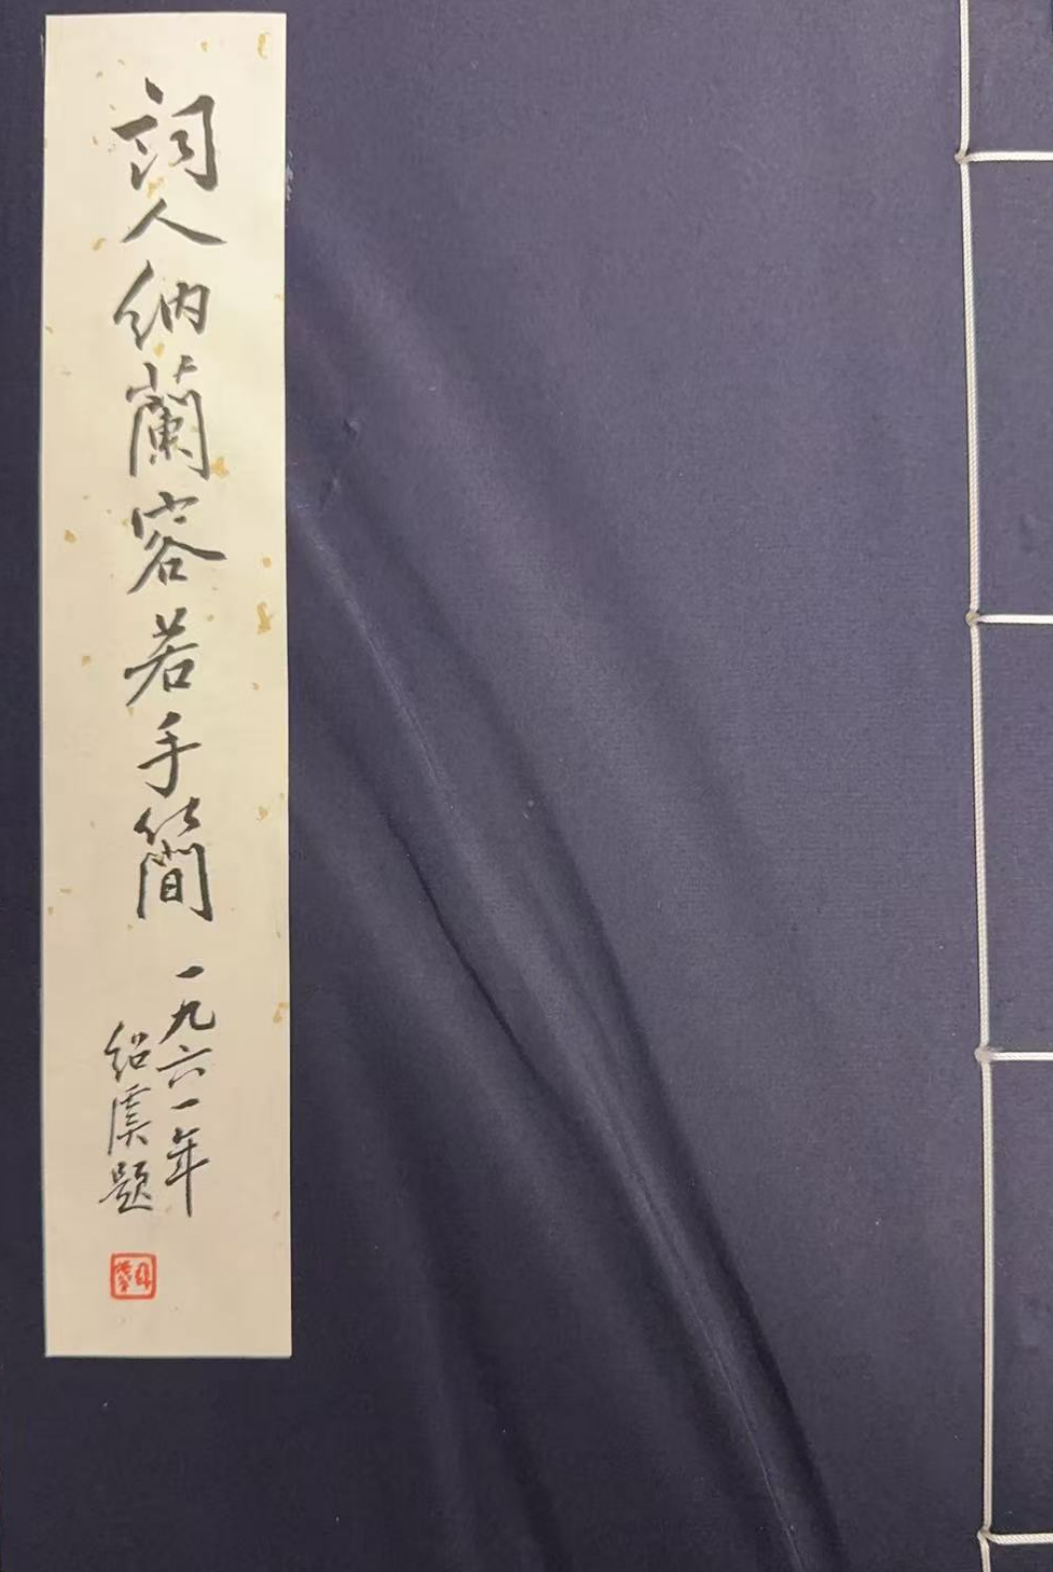 詞人納蘭容若手簡
一九六一年
紹虞题